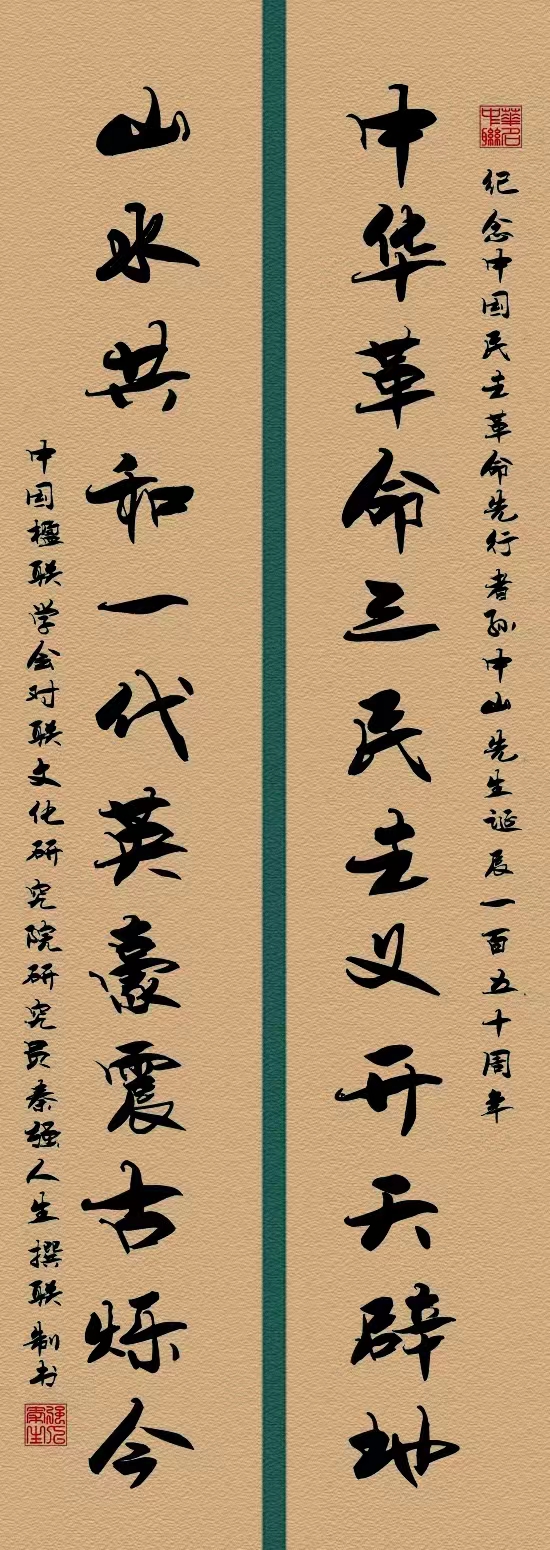 纪念中国民主革命先行者孙中山先生诞辰一百五十周年
中华革命三民主义开天辟地
山水共和一代英豪震古烁今
中国楹联学会对联文化研究院研究员秦强人生撰联制书